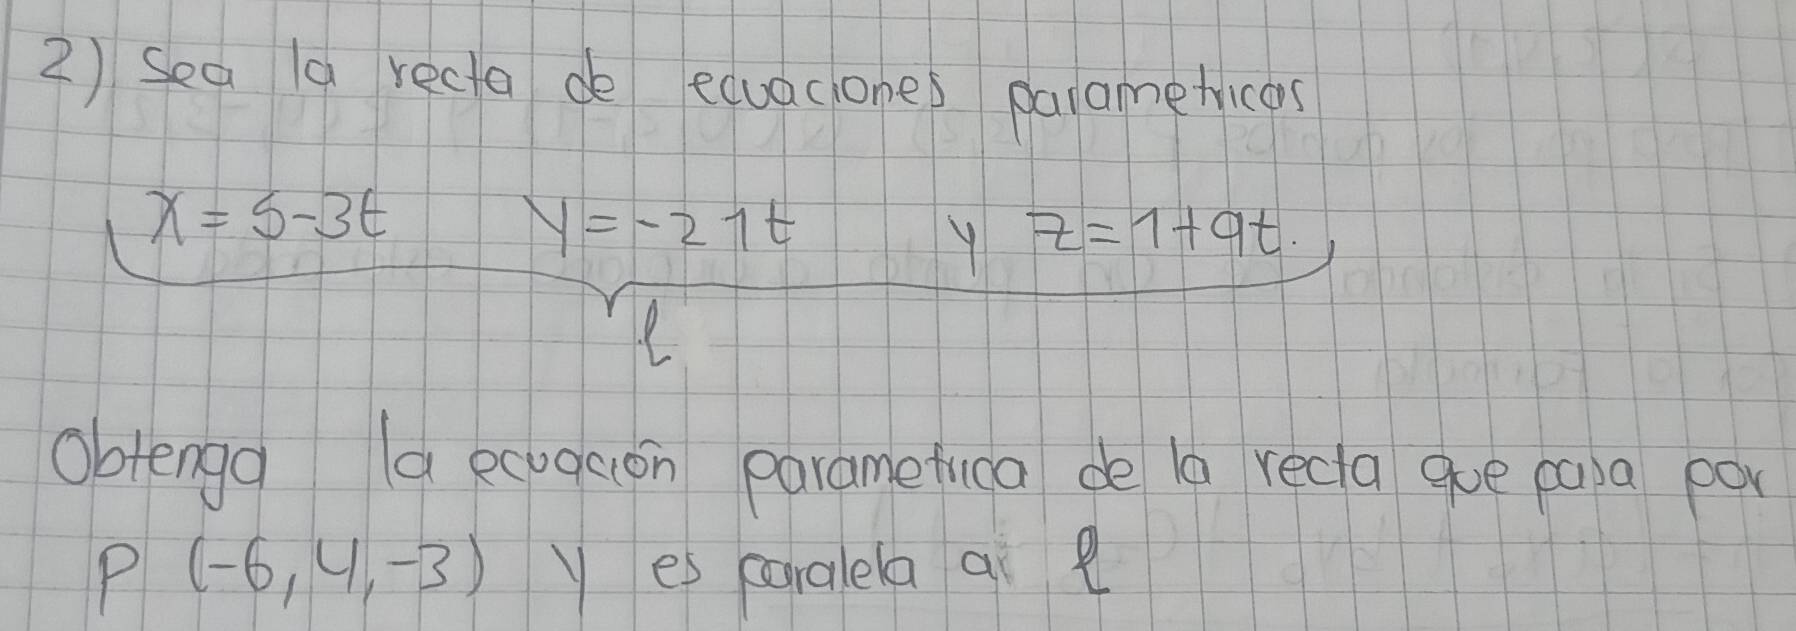 2) Sea la recta de ecuaciones parametricas
x = 5-3t y = -2 1t y z = 1+9t.
l
Obtenga la ecuación parametrica de la recta que pasa por
P (-6, 4, -3) y es paralela a l